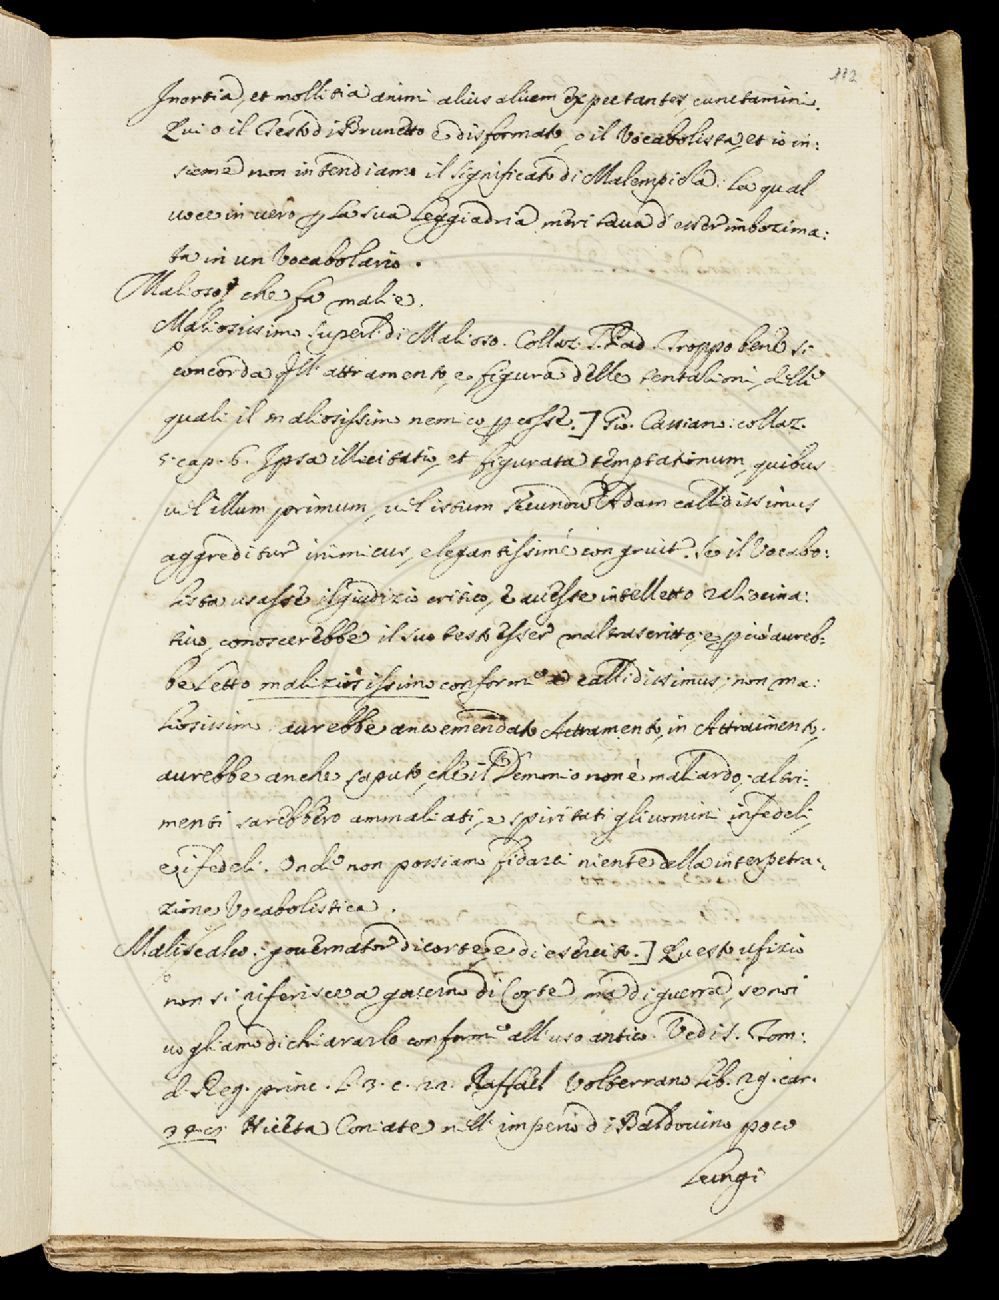 112
Inertia, et mollitia animi alius alium expectantes cunctamini.
Qui o il Testo di Brunetto è disformato, o il Vocabolista, et io in:
sieme non intendiamo il significato di Malempiela: La qual
voce in uero p la sua Leggiadria meritaua d'esser imbozima:
ta in un Vocabolario.
Malioso, che fa malie.
Maliosissimo superl. di Malioso. Collaz. S. Pad. Troppo bene si
concorda qll' attramento, e figura delle tentationi, delli
quali il maliosissimo nemico pcosse.] Gio. Cassiano: collaz.
5. cap. 6. Ipsa illecitatio, et figurata temptationum, quibus
uel illum primum, uel istum secundum Adam callidissimus
aggreditur inimicus, elegantissimè congruit. Se il Vocabo:
lista usasse il giudizio critico, e auesse intelletto raziocina:
tiuo, conoscerebbe il suo testo esser mal trascritto; e pciò aureb:
be Letto maliziosissimo conforme a callidissimus; non ma:
liosissimo: aurebbe anco emendato Attramento, in Attraimento,
aurebbe anche saputo, che il Demonio non è maliardo; altri:
menti sarebbero ammaliati, e spiritati gli uomini infedeli,
e i fedeli. Onde non possiamo fidarci niente della interpetra:
zione Vocabolistica.
Maliscalco: gouernator di corte, e di esercito.] Questo ufizio
non si riferisce a gouerno di Corte, ma di guerra, se noi
uogliamo dichiararlo conforme all' uso antico. Vedi S. Tom:
d. Reg. princ. L. 3. c. 22. Raffael Volterrano Lib. 29. car.
Niceta Coniate nell' imperio di Baldouino poco
Lungi